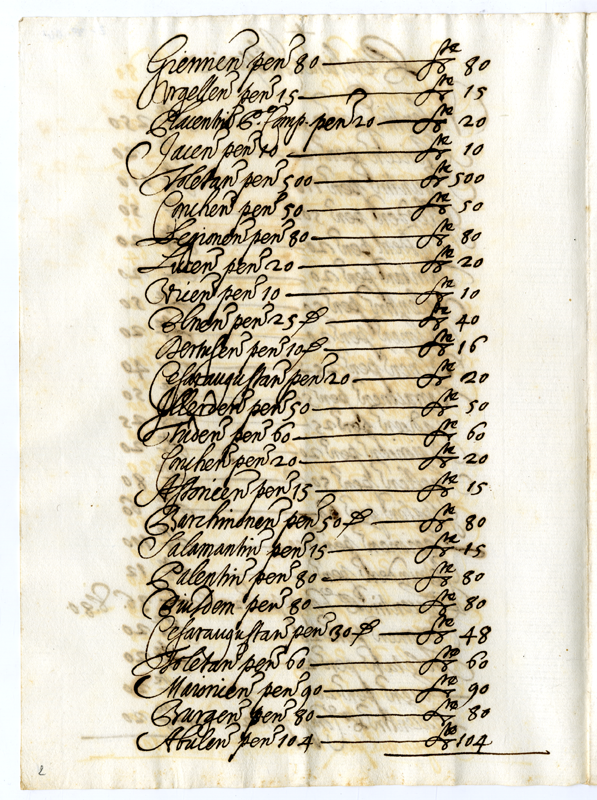 Giennen pen 80 — 80
Urgellen pen 15 — 15
Placentin pen 20 — 20
Jacen pen 10 — 10
Toletan pen 500 — 500
Conchen pen 50 — 50
Legionen pen 80 — 80
Lucen pen 20 — 20
pen 10 — 10
pen 25 — 40
pen 10 — 16
Cesaraugustan pen 20 — 20
Illerden pen 50 — 50
Tuden pen 60 — 60
Conchen pen 20 — 20
Astoricen pen 15 — 15
Barchinonen pen 50 — 80
Salamantin pen 15 — 15
Palentin pen 80 — 80
Eiusdem pen 80 — 80
Cesaraugustan pen 30 — 48
Toletan pen 60 — 60
Maioricen pen 90 — 90
Burgen pen 80 — 80
Abulen pen 104 — 104
2